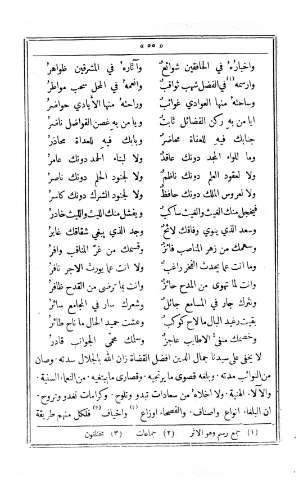 « ٥٥ »
واخباره في الخافقين شوائع وآثاره في المشرقين ظواهر
وارسمه (١) في الفضل شهب ثواقب وانعمه في المحل سحب مواطر
وساحته منها العوادي غوائب وراحته منها الأيادي حواضر
ايا من به ركن الفضائل ثابت ويا من به غصن الفواضل ناضر
جنابك فيه للعفاة محاضر وبابك فيه للعداة محاذر
وما للواء المجد دونك عاقد ولا لبناء الحمد دونك عامر
ولا لعقود العلم دونك ناظم ولا لجنود الحلم دونك ناصر
ولا لعروس الملك دونك حافظ ولا لجنود الشرك دونك كاسر
فيخجل منك الغيث والغيث ساكب ويفشل منك الليث والليث خادر
وسعد الذي ينوي وفاقك لائح وجد الذي يبغي شقاقك عاثر
وسهمك من زهر المناصب فائز وقسمك من غر المناقب وافر
وما انت عما يحدث الفخر راغب ولا انت عما يورث الاجر نافر
وانت لما تهوى من المدح حائز وانت بما ترضى من القدح ظافر
ونثرك جار في المسامع جائل وشعرك سار في المجامع سائر
بقيت رغيد البال ما لاح كوكب وعشت حميد الحال ما ناح طائر
وخصمك منفي الاطايب عاجز وسلك عمي الجوانب قادر
لا يخفى على سيدنا جمال الدين افضل القضاة زان الله بالجلال سدته. وصان
من النوائب مدته. وبلغه قصوى ما يرتجيه. وقصارى ما يبتغيه. من النعماء السنية.
والآلاء الهنية. ولا اخلاه من سعادات تبدو وتلوح. وكرامات تغدو وتروح.
ان البلغاء انواع واصناف. والفصحاء اوزاع (٢) واخياف (٣) فلكل منهم طريقة
(١) جمع رسم وهو الاثر (٢) جماعات (٣) مختلفون